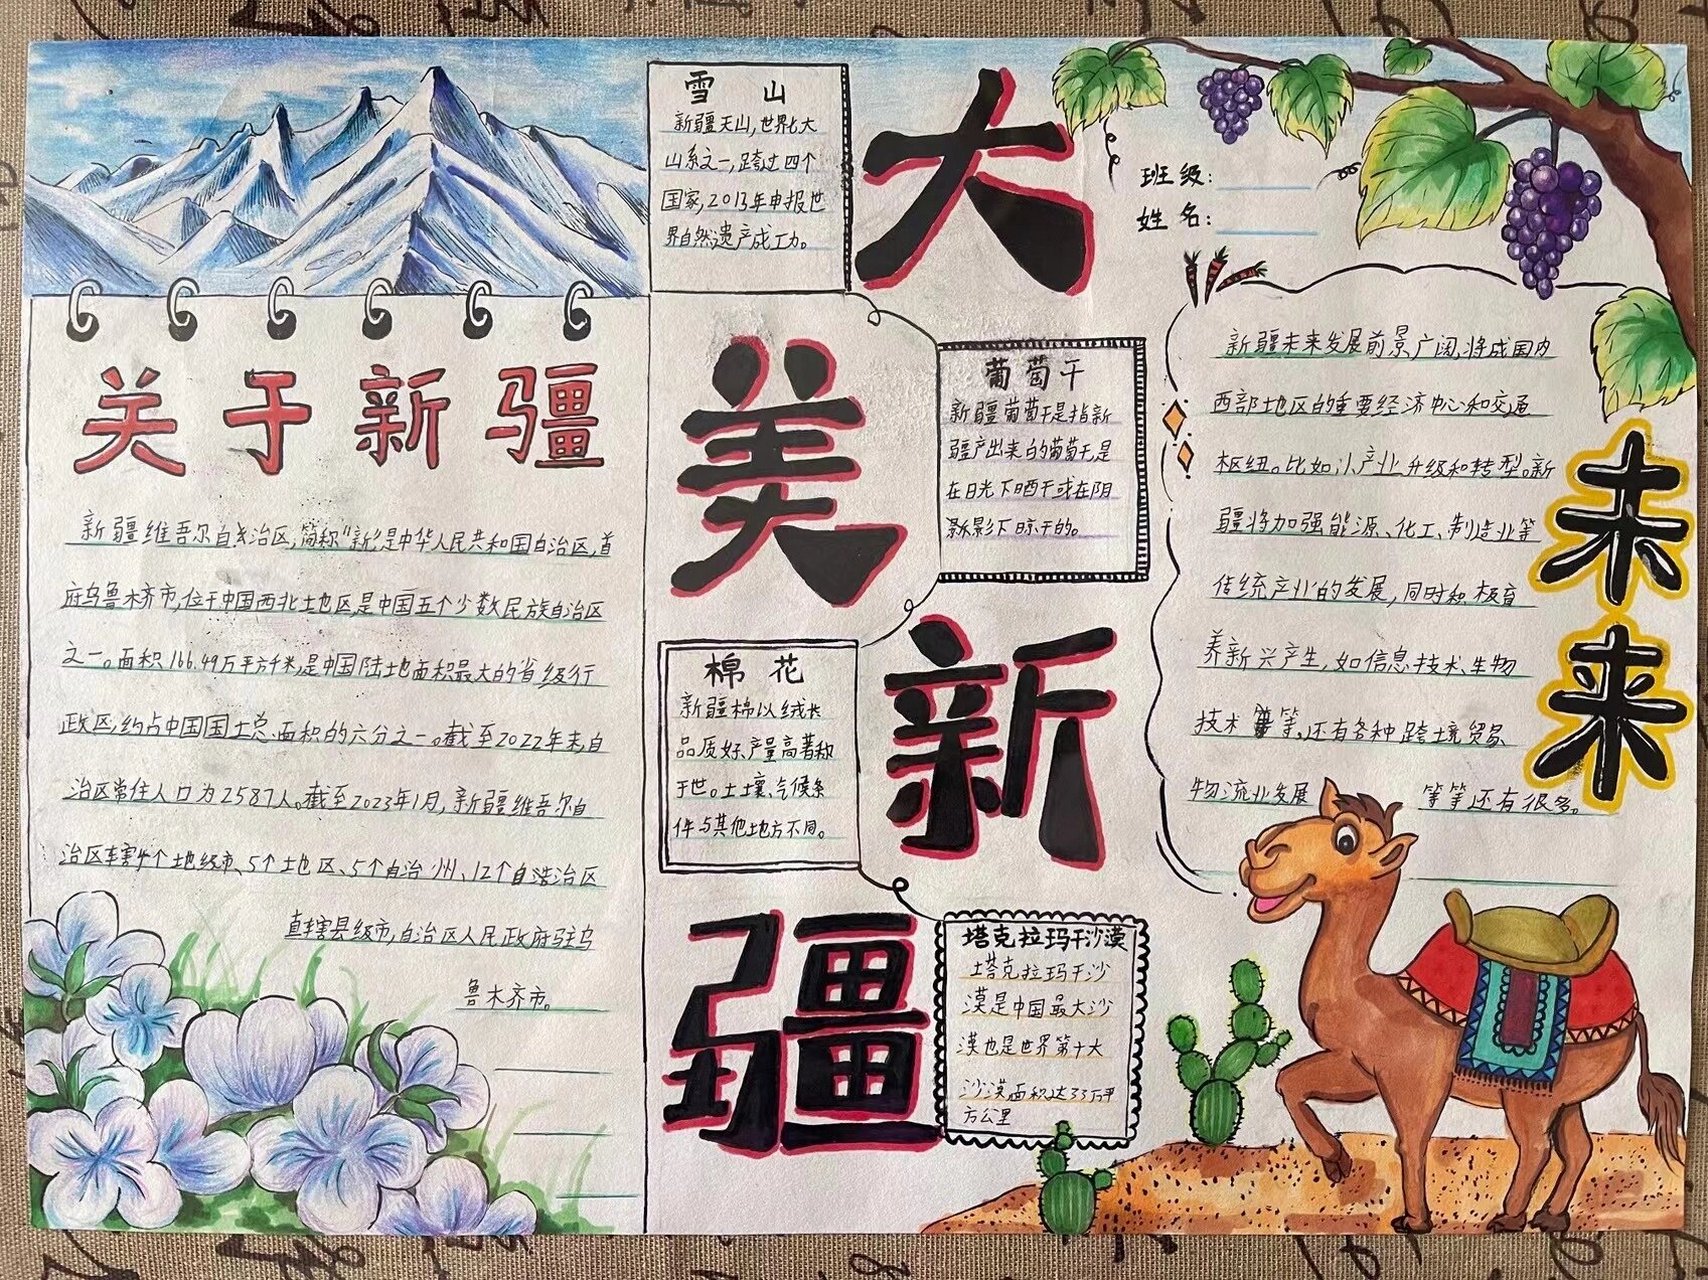 关于新疆
新疆维吾尔自治区,简称"新",是中华人民共和国自治区,首
府乌鲁木齐市,位于中国西北土地区,是中国五个少数民族自治区
之一。面积166.49万平方千米,是中国陆地面积最大的省级行
政区,约占中国国土总面积的六分之一。截至2022年末,自
治区常住人口为2587人。截至2023年1月,新疆维吾尔自
治区车辖4个土地级市、5个土也区、5个自治州、12个自治区
直辖县级市,自治区人民政府驻乌
鲁木齐市。
大美新疆
雪山
新疆天山,世界七大
山系之一,跨过四个
国家,2013年申报世
界自然遗产成功。
葡萄干
新疆葡萄干是指新
疆产出来的葡萄干,是
在日光下晒干或在阴
影下晾干的。
棉花
新疆棉以绒长
品质好、产量高著称
于世。土壤、气候条
件与其他地方不同。
塔克拉玛干沙漠
塔克拉玛干沙
漠是中国最大沙
漠也是世界第十大
沙漠面积达33万平
方公里
班级:
姓名:
未来
新疆未来发展前景广阔,将成国内
西部地区的重要经济中心和交通
枢纽。比如:产业升级和转型。新
疆将加强能源、化工、制造业等
传统产业的发展,同时积极育
养新兴产生,如信息技术、生物
技术等等,还有各种跨境贸易
物流业发展 等等还有很多。